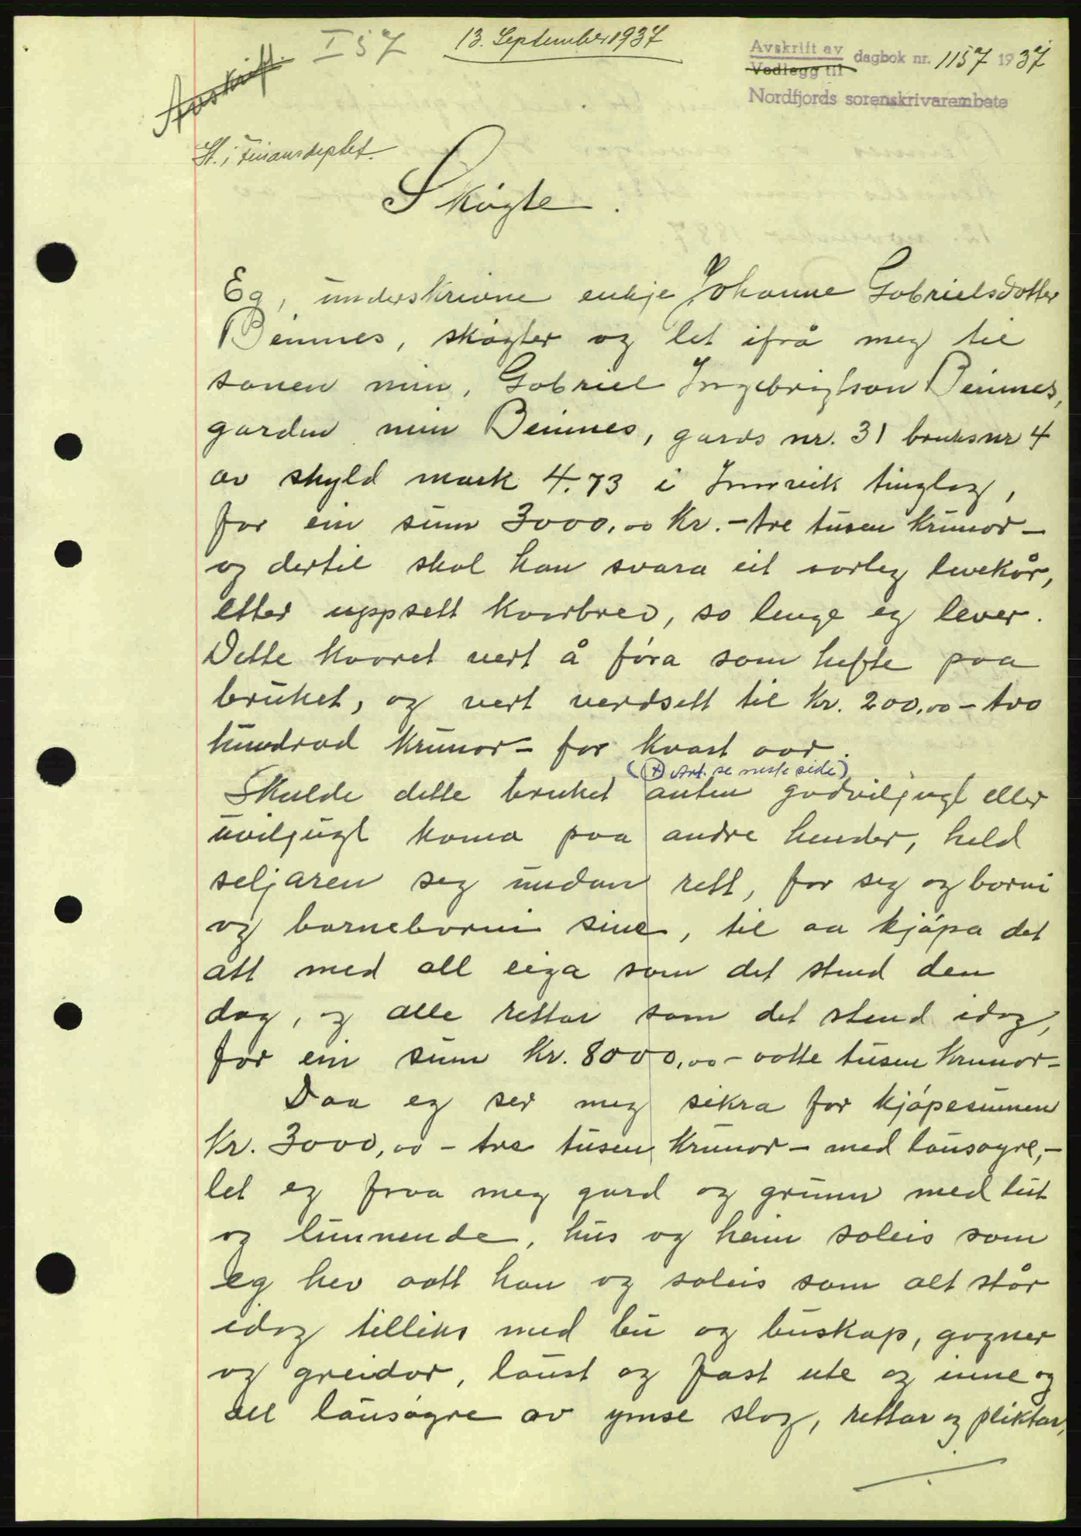 I 57
13. September 1937
Avskrift av
Vedlegg til
dagbok nr. 1157 1937
Nordfjords sorenskrivarembete
Avskrift.
St. i Finansdeptet.
Skøyte.
Eg, underskrivne enkje Johanne Gabrielsdotter
Beinnes, skøyter og let ifrå meg til
sonen min, Gabriel Ingebrigtson Beinnes,
garden min Beinnes, gards nr. 31 bruksnr 4
av skyld mark 4.73 i Innvik tinglag,
for ein sum 3000,00 Kr. - tre tusen krunor -
og dertil skal han svara eit aarleg levekår,
etter uppsett kvorbrev, so lenge eg lever.
Dette kaaret vert å føra som hefte paa
bruket, og vert verdsett til Kr. 200,00 - tvo
hundrad krunor - for kvart aar.
(+ Anf. se neste side)
Skulde dette bruket anten godviljugt eller
uviljugt koma paa andre hender, held
seljaren seg undan rett, for seg og borni
og barneborni sine, til aa kjøpa det
att med all eiga som det stend den
dag, og alle rettar som det stend idag,
for ein sum Kr. 8000,00 - aatte tusen krunor -
Daa eg ser meg sikra for kjøpesumen
Kr. 3000,00 - tre tusen krunor - med lausøyre, -
let eg fraa meg gard og grunn med lut
og lunnende, hus og heim soleis som
eg hev aatt han og soleis som alt står
idag tilliks med bu og buskap, gogner
og greidor, laust og fast ute og inne og
all lausøyre av ymse slag, rettar og pliktar,